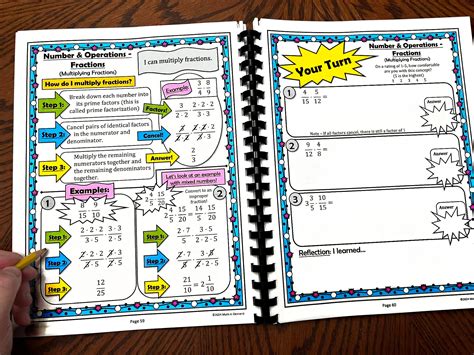 Number & Operations -
Fractions
(Multiplying Fractions)
I can multiply fractions.
How do I multiply fractions?
Step 1:
Break down each number into
its prime factors (this is
called prime factorization)
Factors!
Example
3/4 · 8/9
Step 2:
Cancel pairs of identical factors
in the numerator and
denominator.
Cancel!
Step 3:
Multiply the remaining
numerators together and
the remaining denominators
together.
Answer!
Examples:
Let's look at an example
with mixed numbers!
1
8/15 · 9/10
Step 1:
2·2·2 / 3·5 · 3·3 / 2·5
Step 2:
Step 3:
12/25
2
Convert to an
improper
fraction!
Step 1:
Step 2:
Step 3:
21/10 = 2 1/10
©2024 Math in Demand
Page 59
Your Turn
Number & Operations -
Fractions
(Multiplying Fractions)
On a rating of 1-5, how comfortable
are you with this concept?
(5 is the highest)
1 2 3 4 5
1
4/15 · 5/12
Answer
Note - If all factors cancel, there is still a factor of 1.
2
9/12 · 4/8
Answer
3
Answer
Reflection: I learned...
Page 60
©2024 Math in Demand